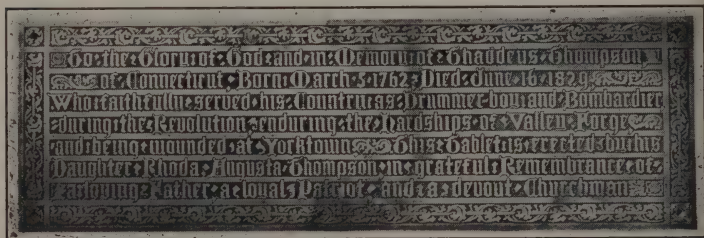 To the Glory of God and in Memory of Thaddeus Thompson
of Connecticut Born March 5 1762 Died June 16 1829
Who faithfully served his Country as Drummer boy and Bombardier
during the Revolution enduring the Hardships of Valley Forge
and being wounded at Yorktown This Tablet is erected by his
Daughter Rhoda Augusta Thompson in grateful Remembrance of
a loving Father a loyal Patriot and a devout Churchman